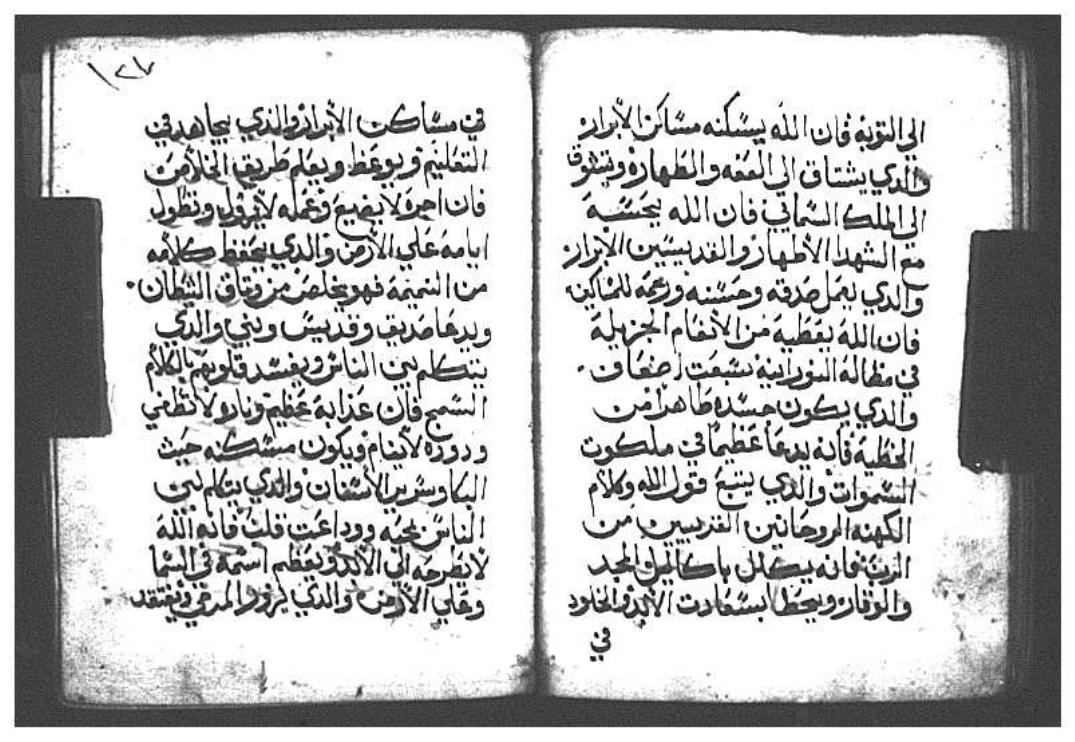 الي التوبه فان الله يسكنه مساكن الابرار
والذي يشتاق الي العفه والطهاره ويتشوق
الي الملك السماني فان الله يحسبه
مع الشهدا الاطهار والقديسين الابرار
والذي يعمل صدقه وحسنه ورحمه للمساكين
فان الله يعطيه من الانعام الجزيله
في مظاله النورانيه سبعت اضعاف
والذي يكون جسده طاهرا من
الخطيه فانه يدعا عظيما في ملكوت
السموات والذي يتبع قول الله وكلام
الكهنه الروحانين القديسين من
الرب فانه يكلل باكاليل المجد
والوقار ويحظا بسعادت الابد والخلود
في
١٢٨
في مساكن الابرار والذي يجاهد في
التعليم ويوعظ ويعلم طريق الخلاص
فان اجره لا يضيع وعمله لا يزول وتطول
ايامه علي الارض والذي يحفظ كلامه
من النميمه فهو يخلص من وتاق الشيطان
ويدعا صديق وقديس ونبي والذي
يتكلم بين الناس ويفسد قلوبهم بالكلام
السمج فان عذابه عظيم وناره لا تطفي
ودوده لا ينام ويكون مسكنه حيث
البكا وصرير الاسنان والذي يتكلم بين
الناس بمحبه ووداعت قلب فانه الله
لا يطرحه الي الابد ويعظم اسمه في السما
وعلي الارض والذي يزور المرضي ويفتقد